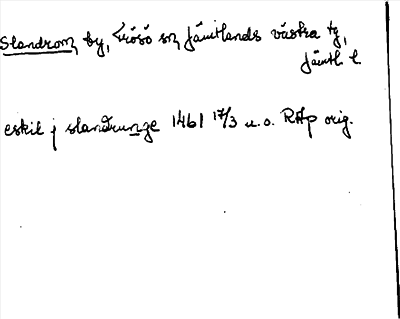 Slandrom, by, Frösö sn, Jämtlands västra tg,
Jämtl. l.
eskil j slandrunge 1461 17/3 u.o. RAp orig.